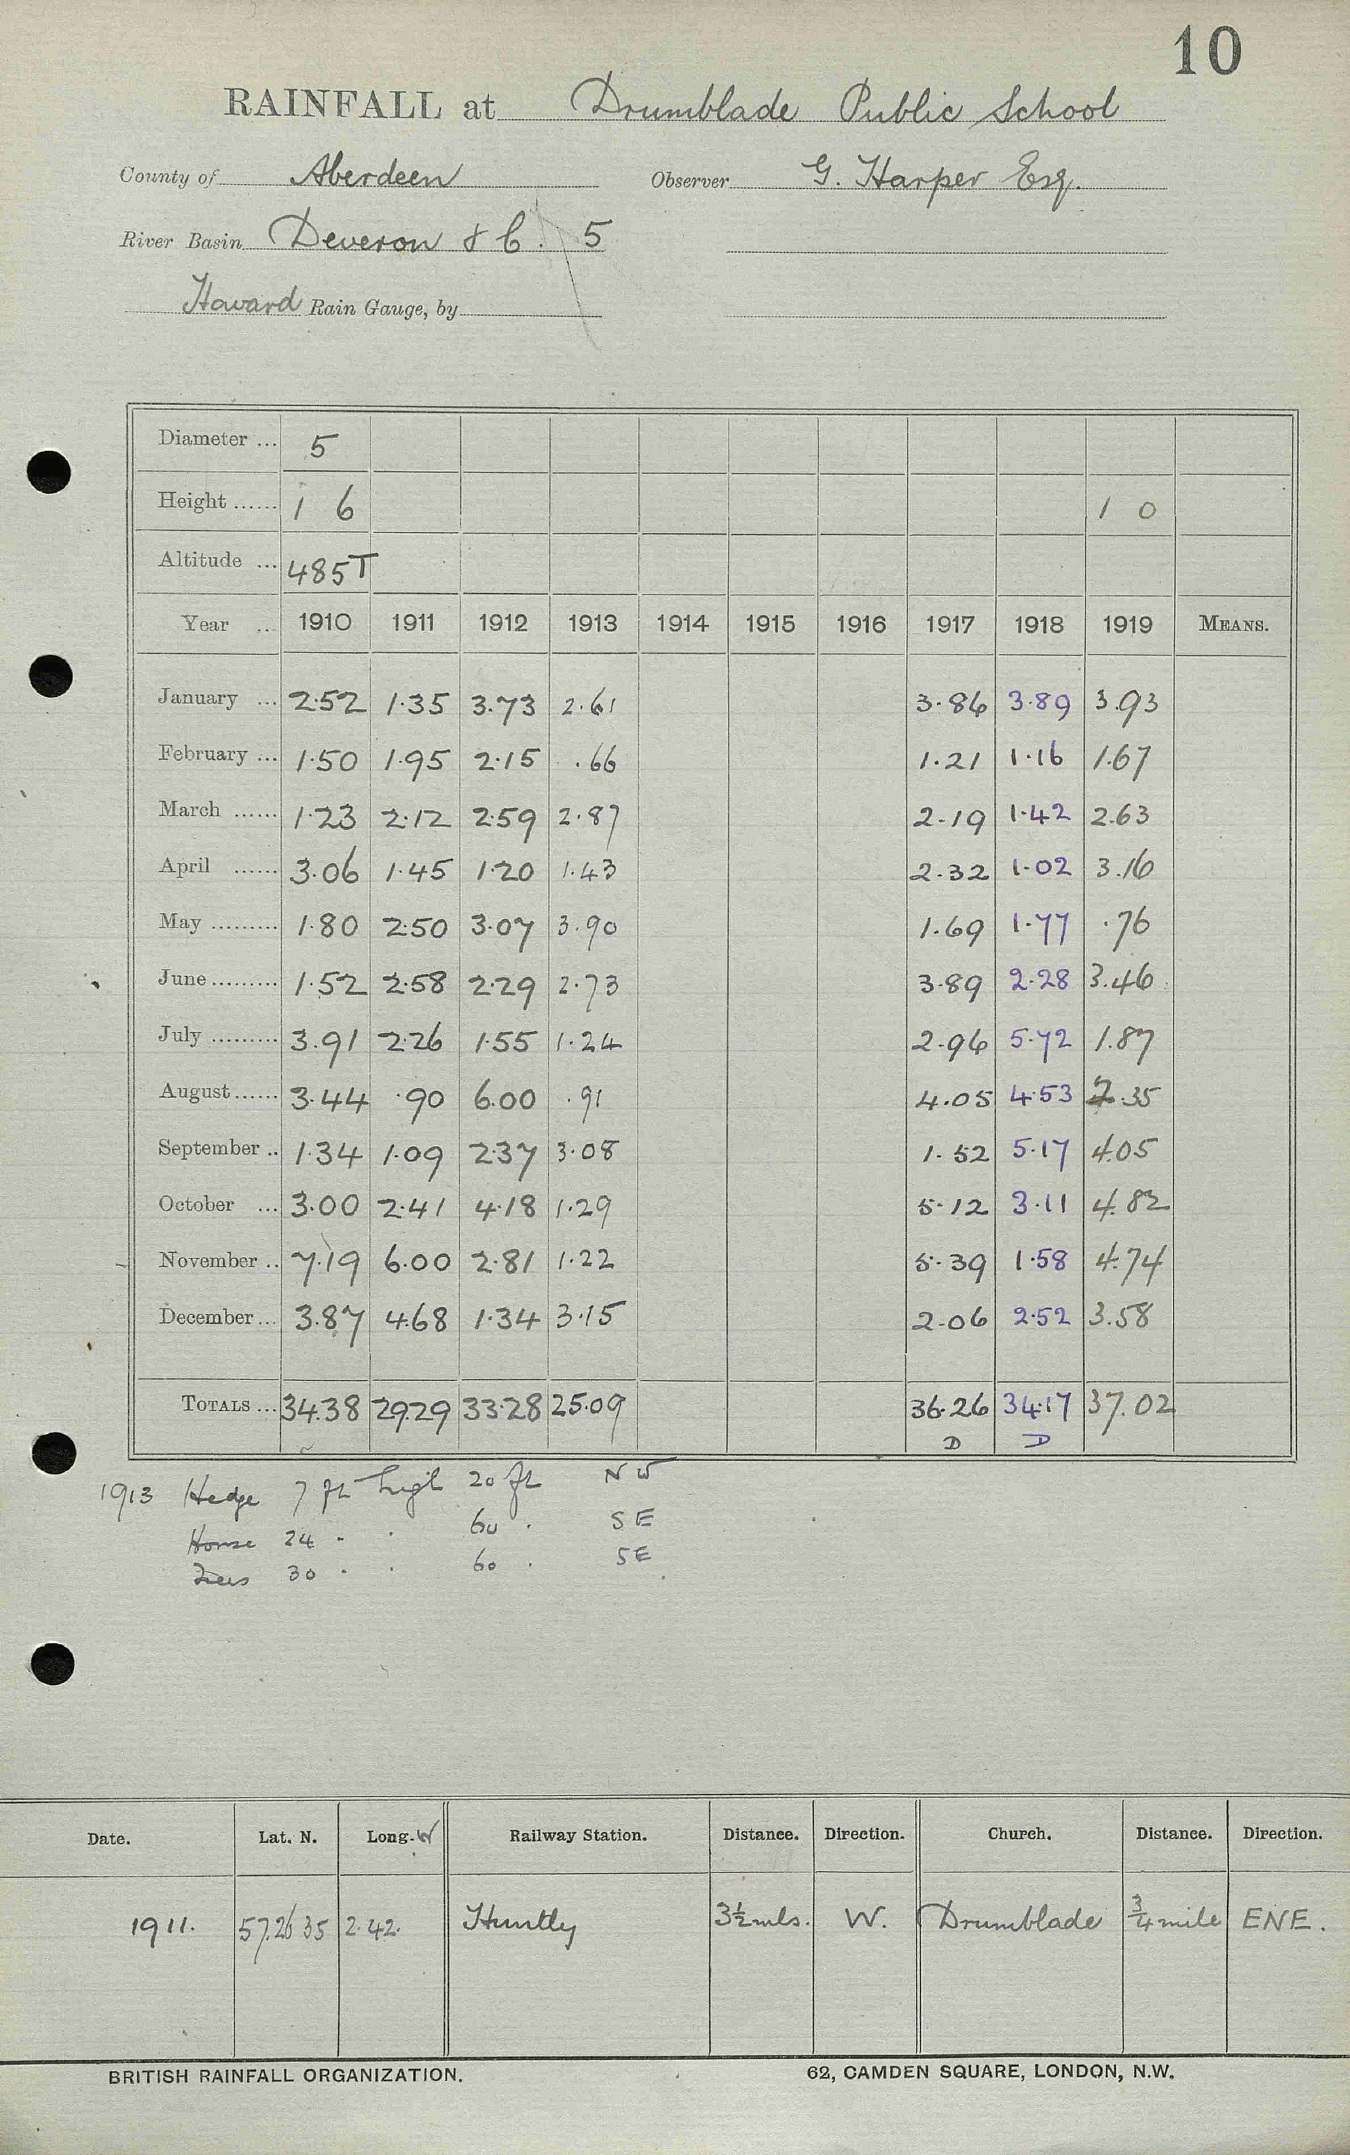 10
RAINFALL at Drumblade Public School
County of Aberdeen Observer G. Harper Esq.
River Basin Deveron & C. 5
Howard Rain Gauge, by
Diameter ... 5
Height ...... 1 6 1 0
Altitude ... 485T
Year ... 1910 1911 1912 1913 1914 1915 1916 1917 1918 1919 MEANS.
January ... 2.52 1.35 3.73 2.61 3.86 3.89 3.93
February ... 1.50 1.95 2.15 .66 1.21 1.16 1.67
March ...... 1.23 2.12 2.59 2.87 2.19 1.42 2.63
April ...... 3.06 1.45 1.20 1.43 2.32 1.02 3.16
May .......... 1.80 2.50 3.07 3.90 1.69 1.77 .76
June ......... 1.52 2.58 2.29 2.73 3.89 2.28 3.46
July .......... 3.91 2.26 1.55 1.24 2.96 5.72 1.87
August ...... 3.44 .90 6.00 .91 4.05 4.53 2.35
September .. 1.34 1.09 2.37 3.08 1.52 5.17 4.05
October ... 3.00 2.41 4.18 1.29 5.12 3.11 4.82
November .. 7.19 6.00 2.81 1.22 5.39 1.58 4.74
December ... 3.87 4.68 1.34 3.15 2.06 2.52 3.58
TOTALS ... 34.38 29.29 33.28 25.09 36.26 34.17 37.02
D D
1913 Hedge 7 ft high 20 ft NW
House 24 " " 60 " SE
Trees 30 " " 60 " SE
Date. Lat. N. Long. W Railway Station. Distance. Direction. Church. Distance. Direction.
1911. 57.26 35 2.42. Huntly 3½ mls. W. Drumblade ¾ mile ENE.
BRITISH RAINFALL ORGANIZATION. 62, CAMDEN SQUARE, LONDON, N.W.